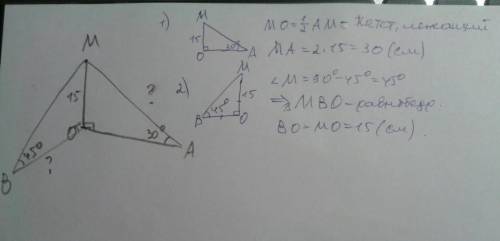 1)
M
15
O
30°
A
MO = ½ AM = Катет, лежащий
MA = 2·15 = 30 (см)
2)
M
15
45°
B
O
∠M = 90° - 45° = 45°
⇒ MBO - равнобедр.
BO = MO = 15 (см).
M
15
?
O
30°
A
45°
?
B